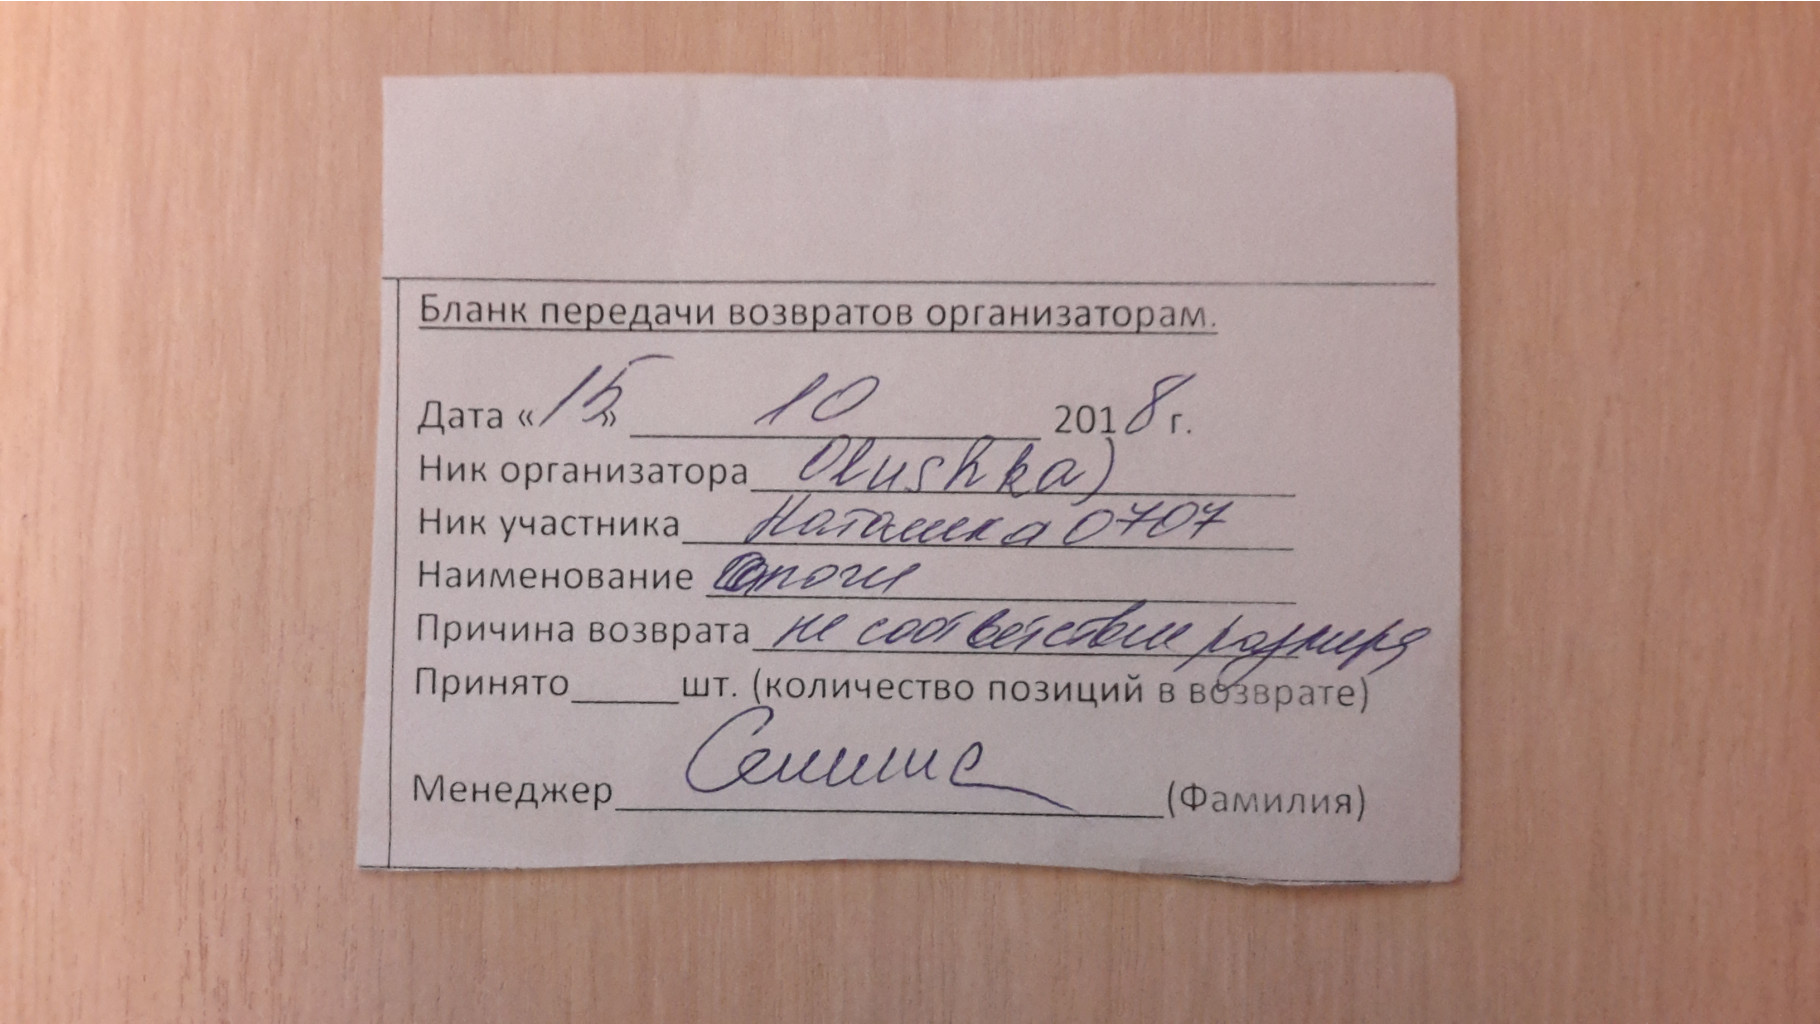 Бланк передачи возвратов организаторам.
Дата «15» 10 2018 г.
Ник организатора Olushka)
Ник участника Наташка0707
Наименование Сапоги
Причина возврата не соответствие размера
Принято______шт. (количество позиций в возврате)
Менеджер (Фамилия)